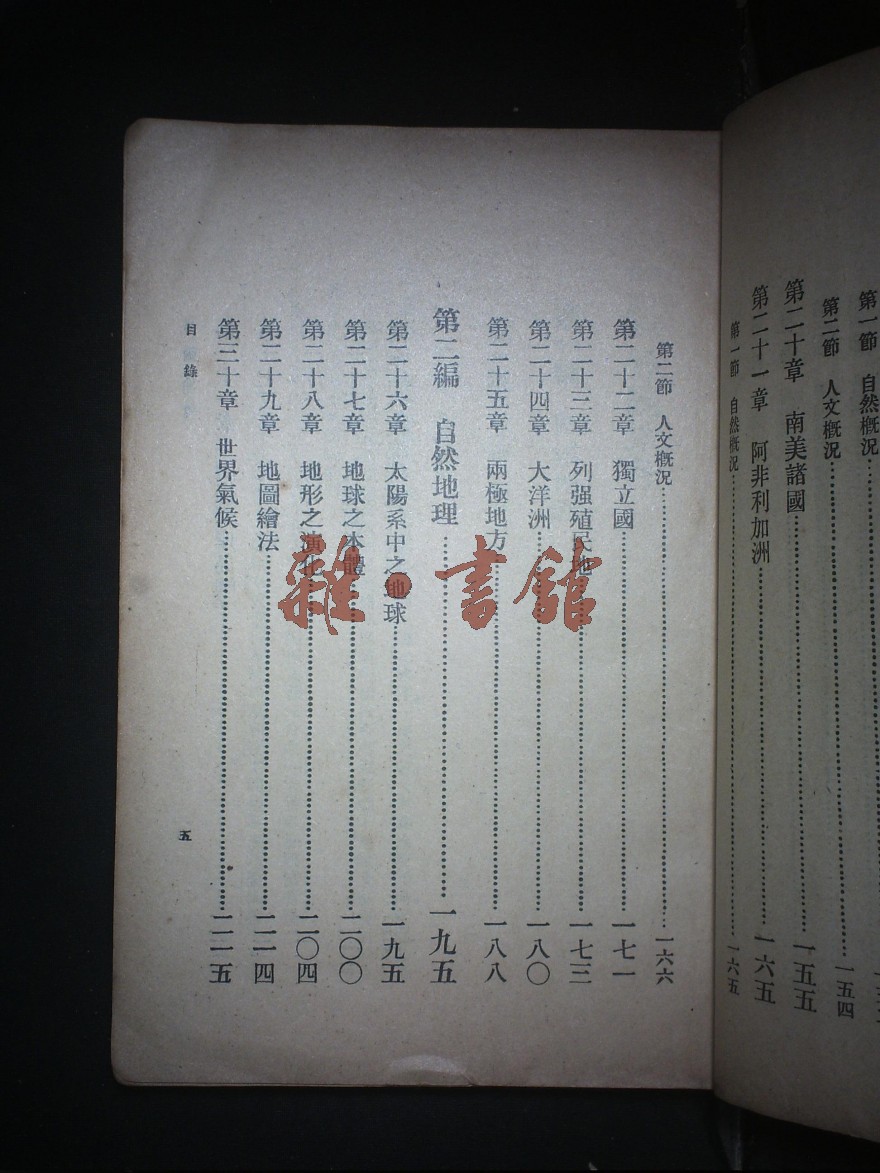 第一節 自然概況
第二節 人文概況……一五四
第二十章 南美諸國……一五五
第二十一章 阿非利加洲……一六五
第一節 自然概況……一六五
第二節 人文概況……一六六
第二十二章 獨立國……一七一
第二十三章 列强殖民地……一七三
第二十四章 大洋洲……一八〇
第二十五章 兩極地方……一八八
第二編 自然地理……一九五
第二十六章 太陽系中之地球……一九五
第二十七章 地球之本體……二〇〇
第二十八章 地形之演化……二〇四
第二十九章 地圖繪法……二一四
第三十章 世界氣候……二二五
目錄 五
雜·書館